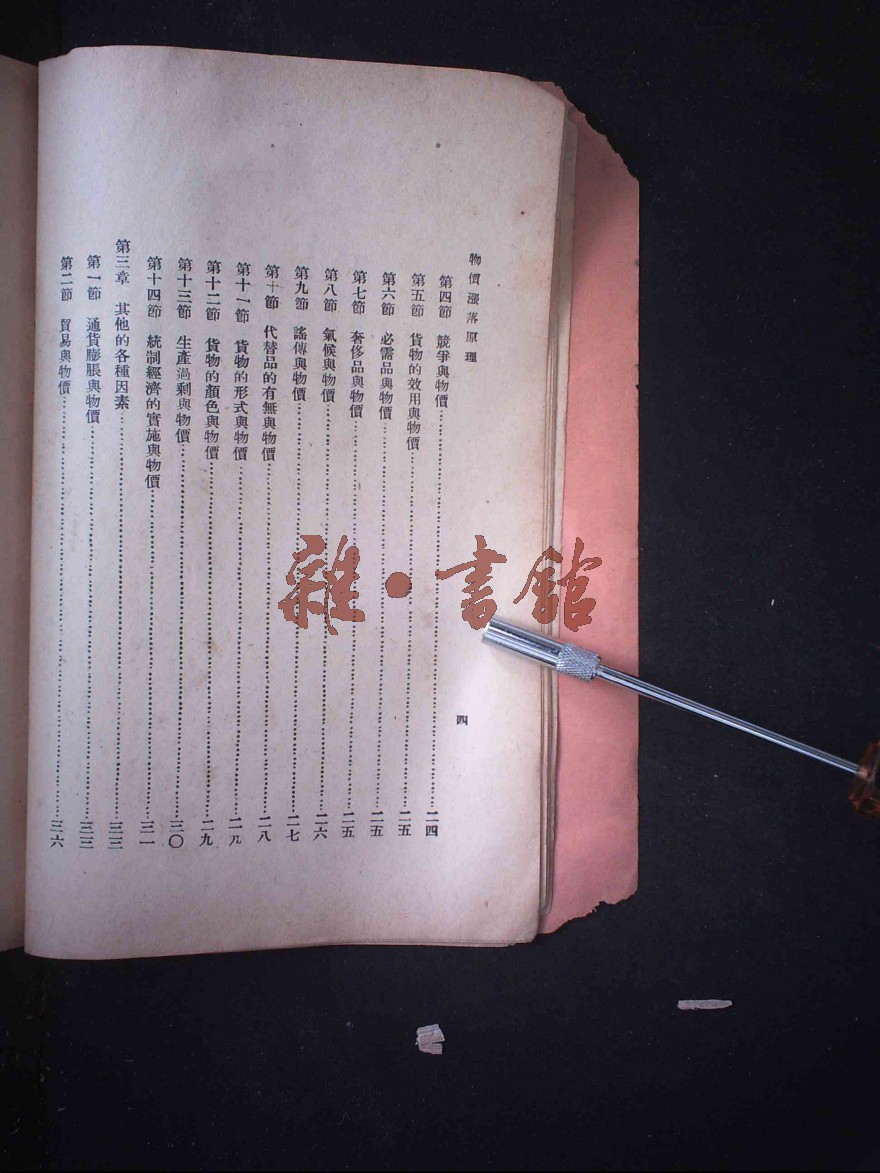 物價漲落原理
四
第四節　競爭與物價……二四
第五節　貨物的效用與物價……二五
第六節　必需品與物價……二五
第七節　奢侈品與物價……二五
第八節　氣候與物價……二六
第九節　謠傳與物價……二七
第十節　代替品的有無與物價……二八
第十一節　貨物的形式與物價……二九
第十二節　貨物的顏色與物價……二九
第十三節　生產過剩與物價……三〇
第十四節　統制經濟的實施與物價……三一
第三章　其他的各種因素……三三
第一節　通貨膨脹與物價……三三
第二節　貿易與物價……三六
雜·書館